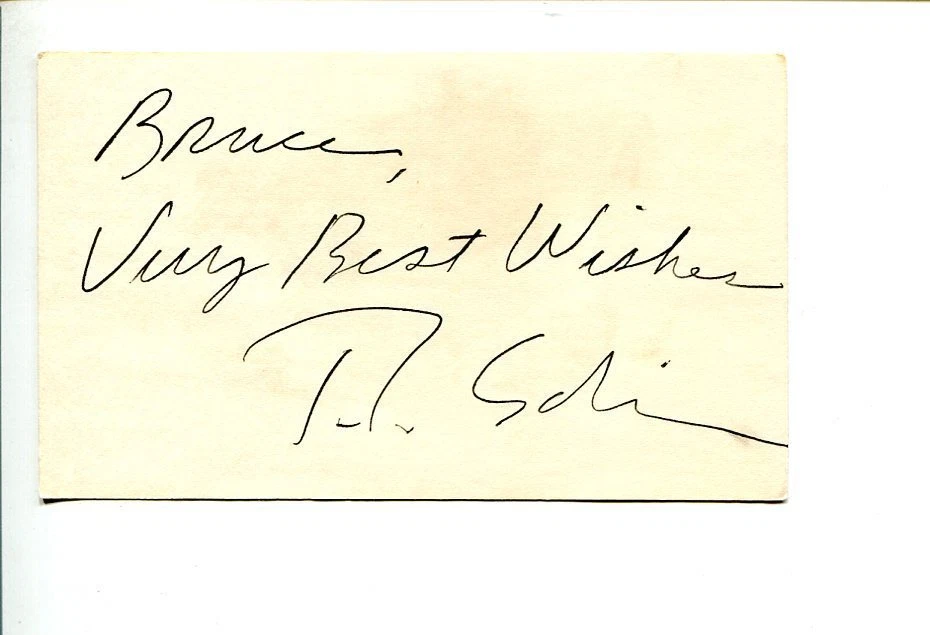 Bruce,
Very Best Wishes